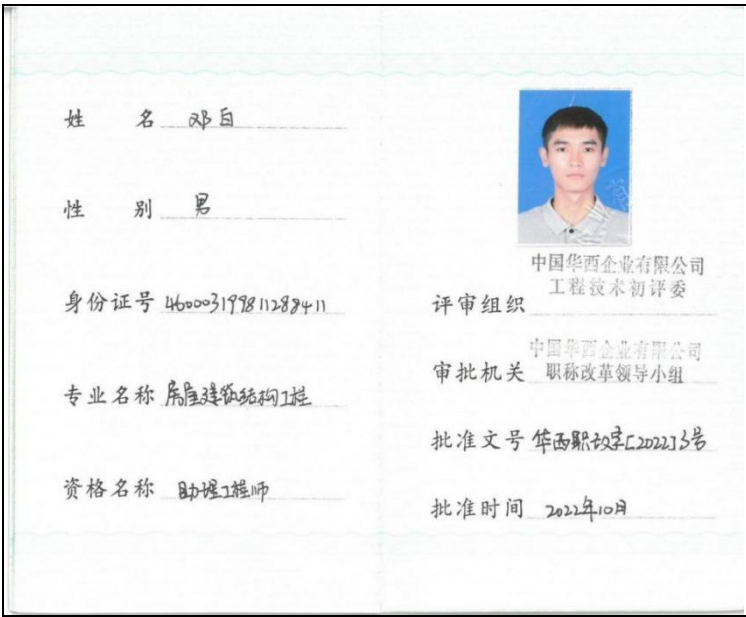 姓 名 邓自
性 别 男
身份证号 460003199811288411
专业名称 房屋建筑结构工程
资格名称 助理工程师
中国华西企业有限公司
工程技术初评委
评审组织
中国华西企业有限公司
审批机关 职称改革领导小组
批准文号 华西职改字[2022]3号
批准时间 2022年10月